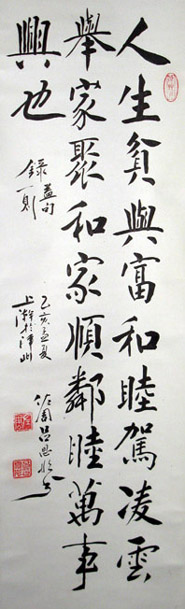 人生貧與富和睦駕凌雲
舉家聚和家順鄰睦萬事
興也
錄益句
一則
乙亥孟夏
上澣於津州